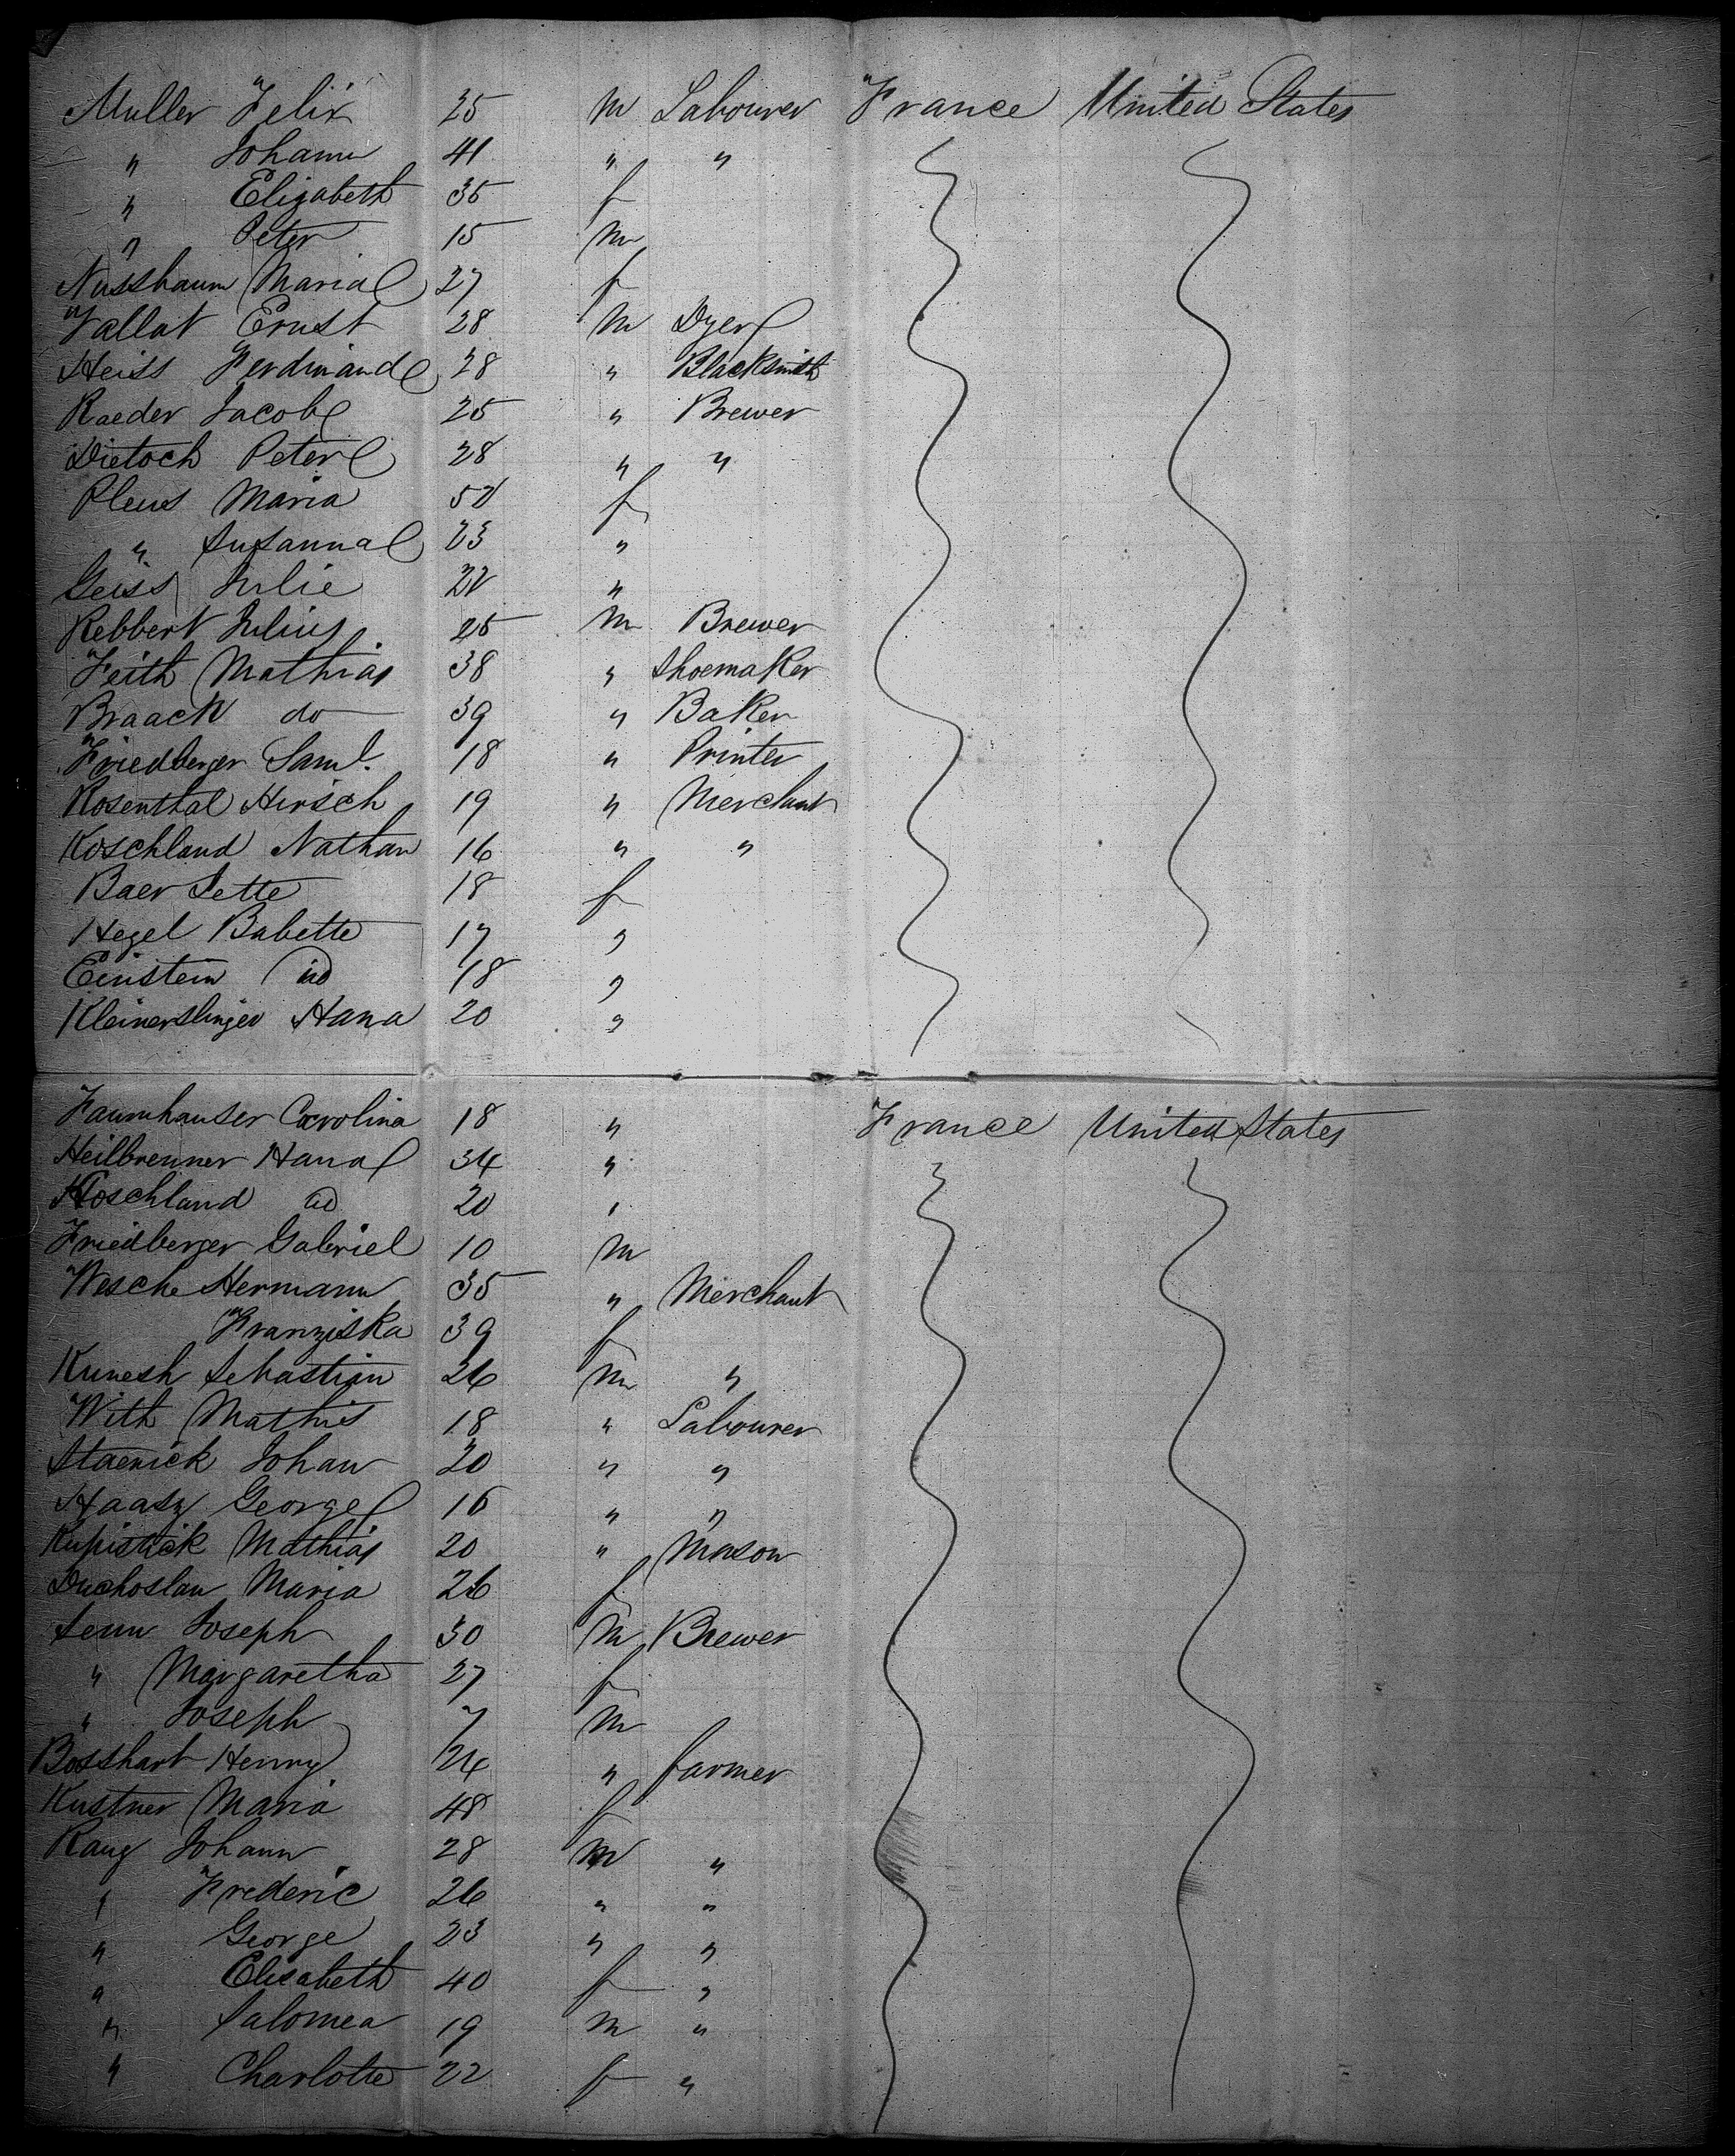 Muller Felix 25 m Labourer France United States
" Johann 41 " "
" Elizabeth 35 f
" Peter 15 m
Nussbaum Maria 27 f
Vallat Ernst 28 m Dyer
Heiss Ferdinand 28 " Blacksmith
Raeder Jacob 25 " Brewer
Dietoch Peter 28 " "
Pleus Maria 52 f
" Susanna 23 "
Geiss Julie 22 "
Rebbert Julius 25 m Brewer
Feith Mathias 38 " Shoemaker
Braack do 39 " Baker
Friedberger Saml. 18 " Printer
Rosenthal Hirsch 19 " Merchant
Koschland Nathan 16 " "
Baer Jette 18 f
Hegel Babette 17 "
Einstein id 18 "
Kleinerslinger Hana 20 "
Faumhauser Carolina 18 " France United States
Heilbrenner Hana 34 "
Koschland id 20 "
Friedberger Gabriel 10 m
Wesche Hermann 35 " Merchant
Franziska 39 f
Kunesh Sebastian 26 m "
With Mathis 18 " Labourer
Staenick Johan 20 " "
Haasz George 16 " "
Kupistick Mathias 20 " Mason
Duchoslau Maria 26 f
Senn Joseph 30 m Brewer
" Margaretha 27 f
" Joseph 7 m
Bosshart Henry 24 " farmer
Kustner Maria 48 f
Raug Johann 28 m "
" Frederic 26 " "
" George 23 " "
" Elisabeth 40 f "
" Salomea 19 m "
" Charlotte 22 f "